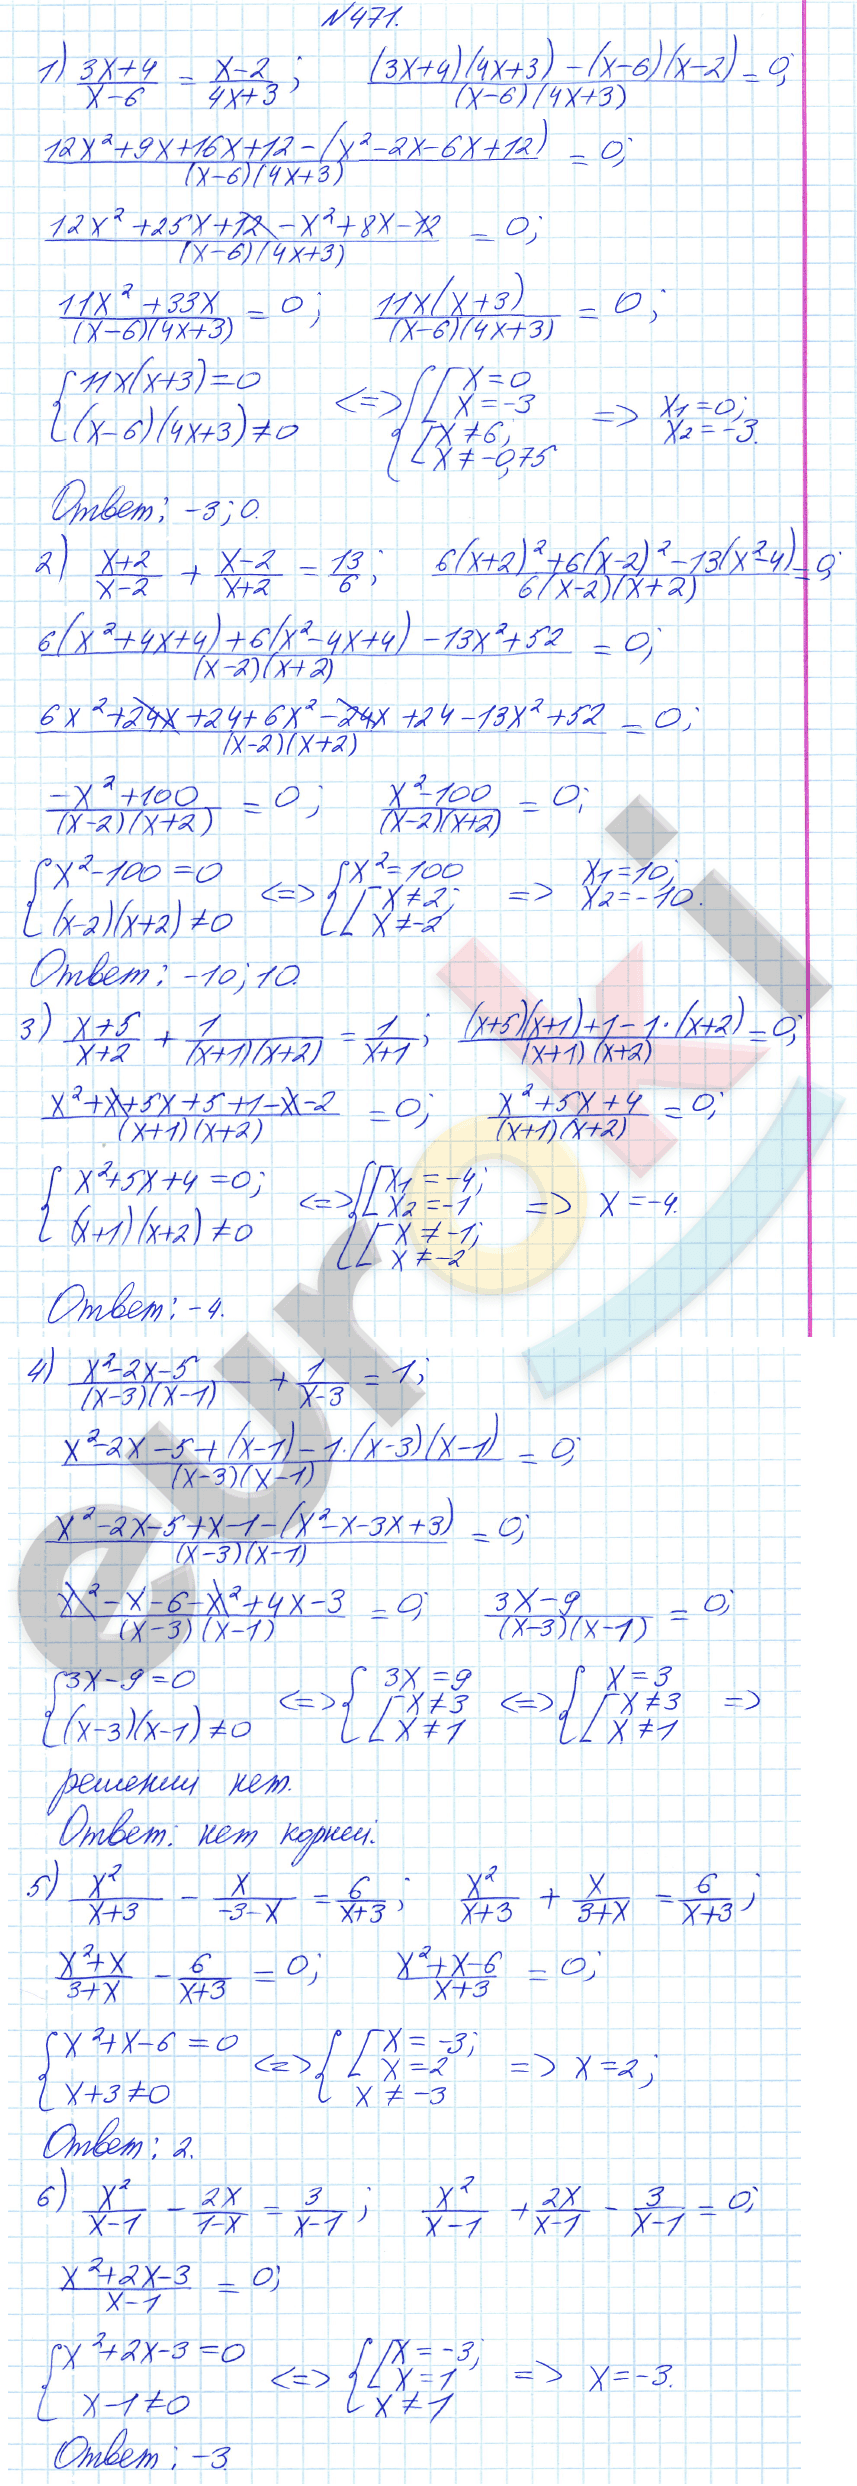 №471.
1) (3x+4)/(x-6) = (x-2)/(4x+3); ((3x+4)(4x+3)-(x-6)(x-2))/((x-6)(4x+3)) = 0;
(12x²+9x+16x+12-(x²-2x-6x+12))/((x-6)(4x+3)) = 0;
(12x²+25x+12-x²+8x-12)/((x-6)(4x+3)) = 0;
(11x²+33x)/((x-6)(4x+3)) = 0; (11x(x+3))/((x-6)(4x+3)) = 0;
{ 11x(x+3)=0 <=> { [ x=0 => x₁=0;
(x-6)(4x+3)≠0 x=-3 x₂=-3.
[ x≠6;
x≠-0,75
Ответ: -3; 0.
2) (x+2)/(x-2) + (x-2)/(x+2) = 13/6; (6(x+2)²+6(x-2)²-13(x²-4))/(6(x-2)(x+2)) = 0;
(6(x²+4x+4)+6(x²-4x+4)-13x²+52)/((x-2)(x+2)) = 0;
(6x²+24x+24+6x²-24x+24-13x²+52)/((x-2)(x+2)) = 0;
(-x²+100)/((x-2)(x+2)) = 0; (x²-100)/((x-2)(x+2)) = 0;
{ x²-100=0 <=> { x²=100 => x₁=10;
(x-2)(x+2)≠0 [ x≠2; x₂=-10.
x≠-2
Ответ: -10; 10.
3) (x+5)/(x+2) + 1/((x+1)(x+2)) = 1/(x+1); ((x+5)(x+1)+1-1·(x+2))/((x+1)(x+2)) = 0;
(x²+x+5x+5+1-x-2)/((x+1)(x+2)) = 0; (x²+5x+4)/((x+1)(x+2)) = 0;
{ x²+5x+4=0; <=> { [ x₁=-4; => x=-4.
(x+1)(x+2)≠0 x₂=-1
[ x≠-1;
x≠-2
Ответ: -4.
4) (x²-2x-5)/((x-3)(x-1)) + 1/(x-3) = 1;
(x²-2x-5+(x-1)-1·(x-3)(x-1))/((x-3)(x-1)) = 0;
(x²-2x-5+x-1-(x²-x-3x+3))/((x-3)(x-1)) = 0;
(x²-x-6-x²+4x-3)/((x-3)(x-1)) = 0; (3x-9)/((x-3)(x-1)) = 0;
{ 3x-9=0 <=> { 3x=9 <=> { x=3 =>
(x-3)(x-1)≠0 [ x≠3 [ x≠3
x≠1 x≠1
решений нет.
Ответ: нет корней.
5) x²/(x+3) - x/(-3-x) = 6/(x+3); x²/(x+3) + x/(3+x) = 6/(x+3);
(x²+x)/(3+x) - 6/(x+3) = 0; (x²+x-6)/(x+3) = 0;
{ x²+x-6=0 <=> { [ x=-3; => x=2;
x+3≠0 x=2
x≠-3
Ответ: 2.
6) x²/(x-1) - 2x/(1-x) = 3/(x-1); x²/(x-1) + 2x/(x-1) - 3/(x-1) = 0;
(x²+2x-3)/(x-1) = 0;
{ x²+2x-3=0 <=> { [ x=-3; => x=-3.
x-1≠0 x=1
x≠1
Ответ: -3.
euroki